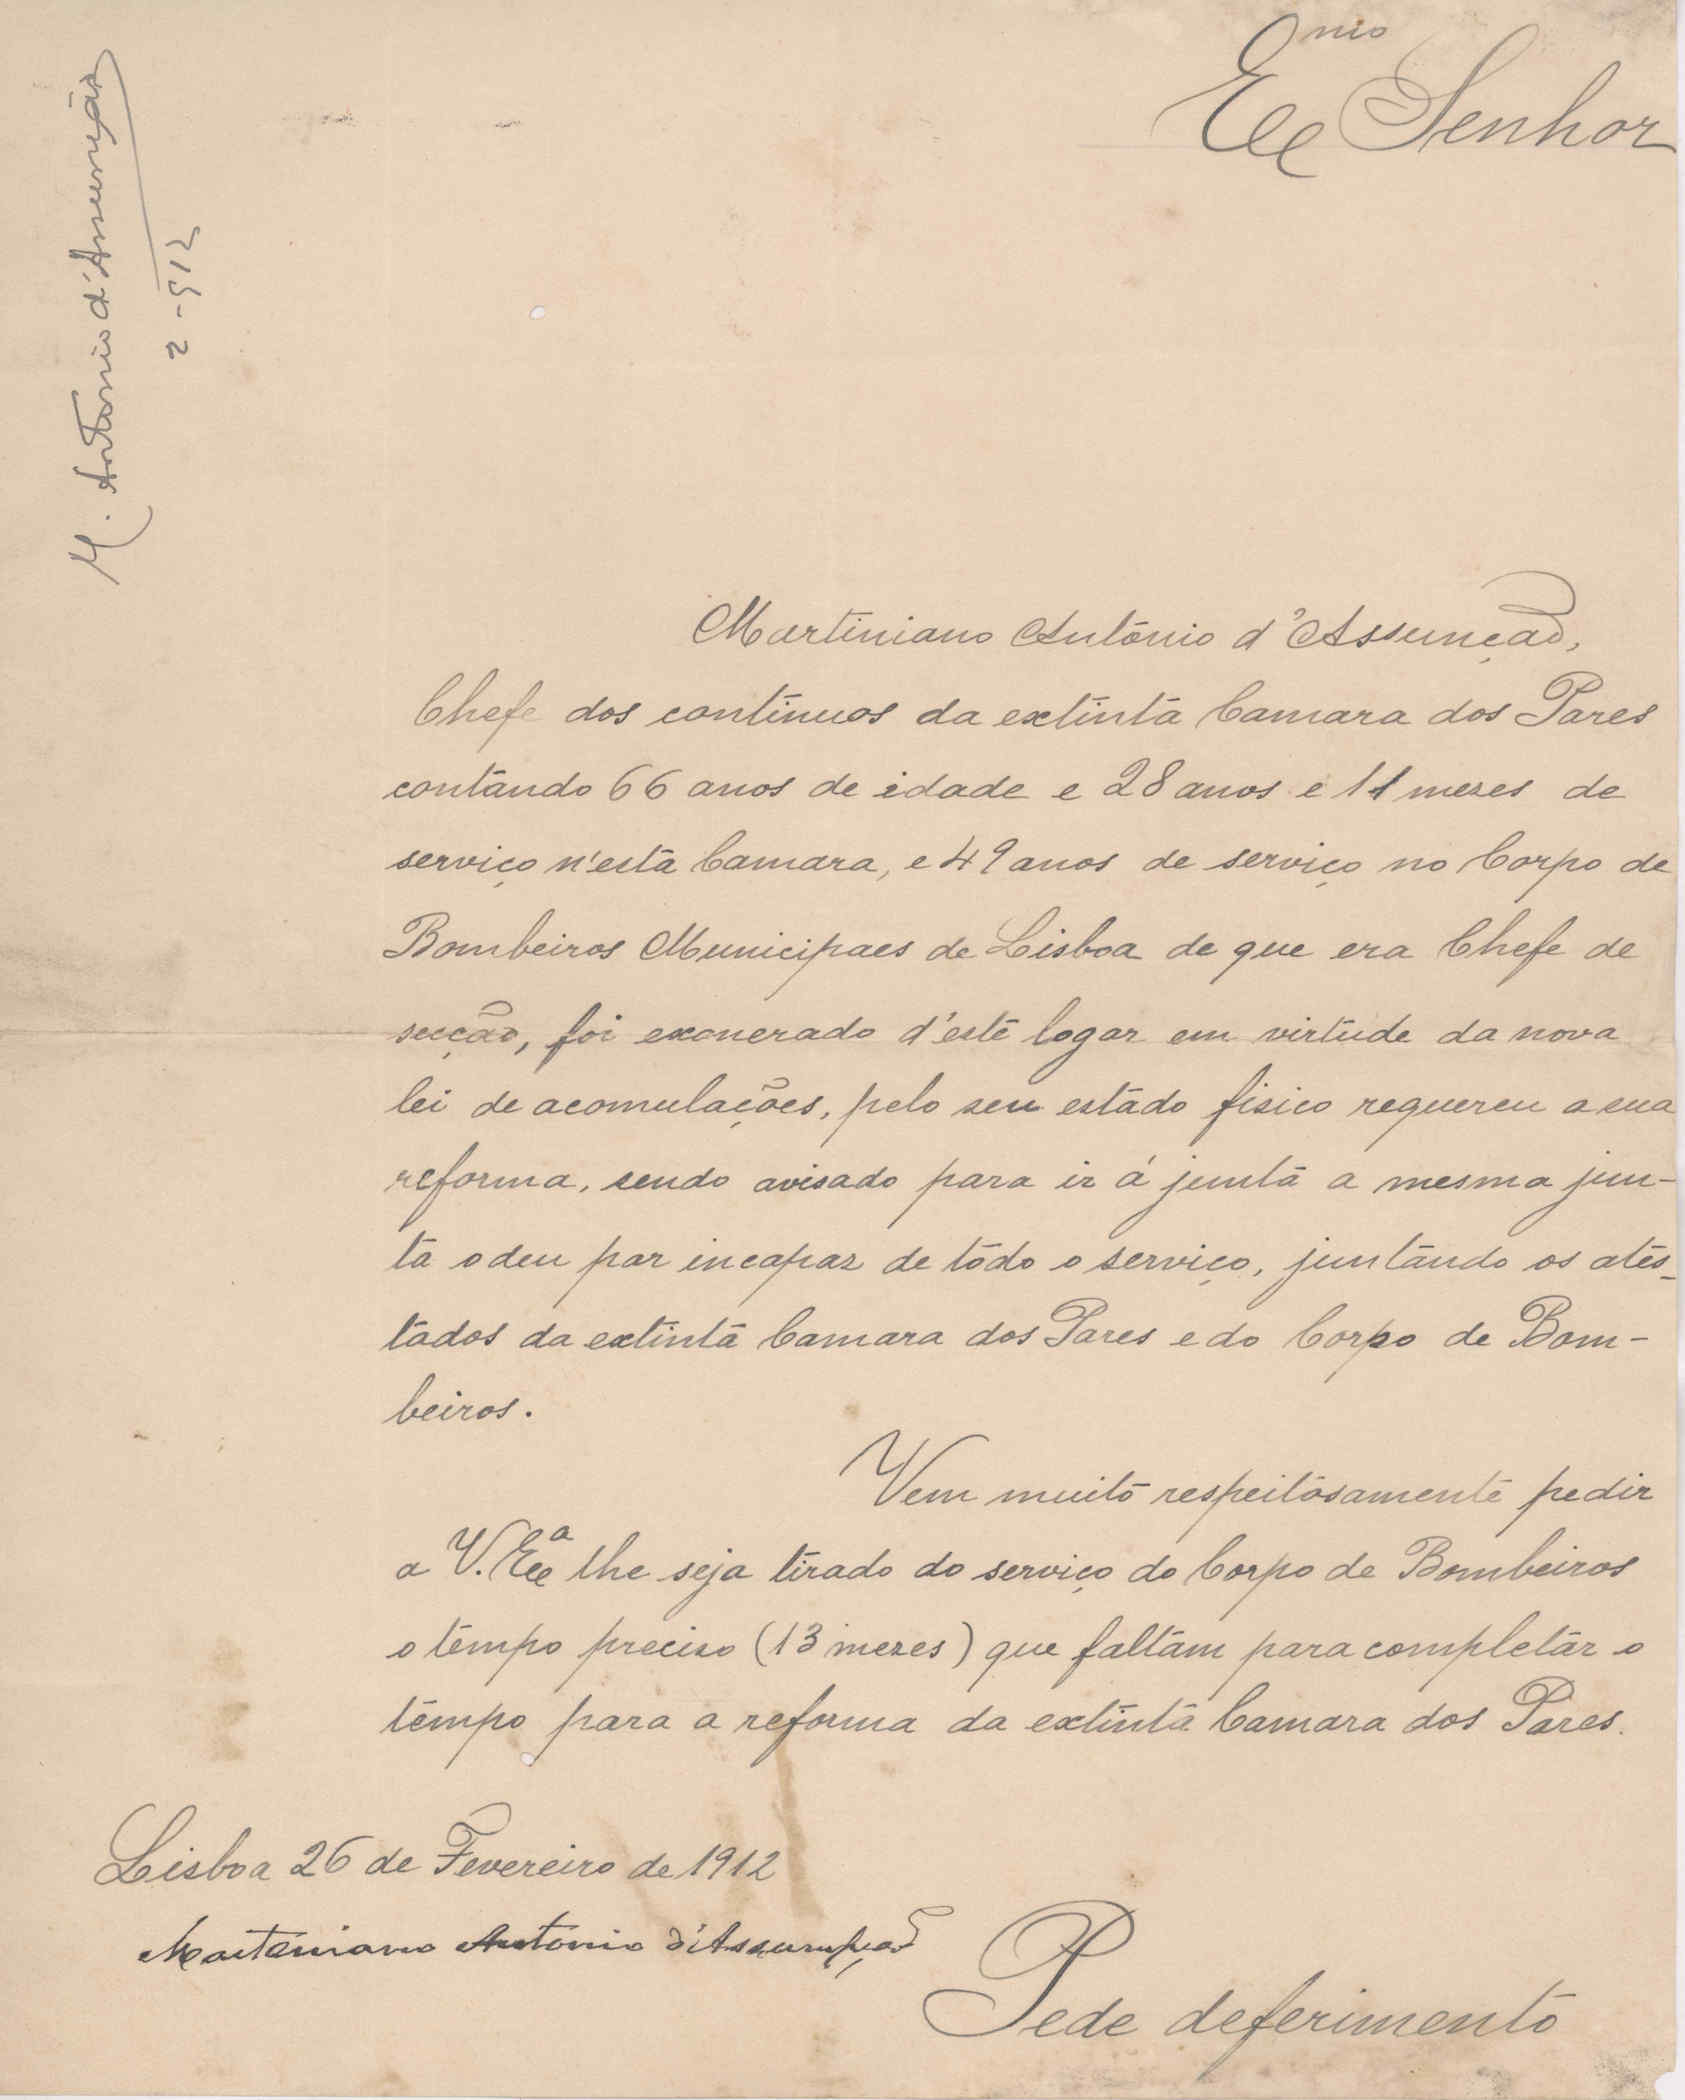 Exmo Senhor
M. Antonio d'Assunção
2-912
Martiniano António d'Assunção,
Chefe dos continuos da extinta Camara dos Pares
contando 66 anos de idade e 28 anos e 11 mezes de
serviço n'esta Camara, e 49 anos de serviço no Corpo de
Bombeiros Municipaes de Lisboa de que era Chefe de
secção, foi exonerado d'este logar em virtude da nova
lei de acomulações, pelo seu estado fisico requereu a sua
reforma, sendo avisado para ir á junta a mesma jun-
ta o deu por incapaz de todo o serviço, juntando os ates-
tados da extinta Camara dos Pares e do Corpo de Bom-
beiros.
Vem muito respeitosamente pedir
a V. Exa lhe seja tirado do serviço do Corpo de Bombeiros
o tempo preciso (13 mezes) que faltam para completar o
tempo para a reforma da extinta Camara dos Pares.
Lisboa 26 de Fevereiro de 1912
Marteniano António d'Assumpção
Pede deferimento